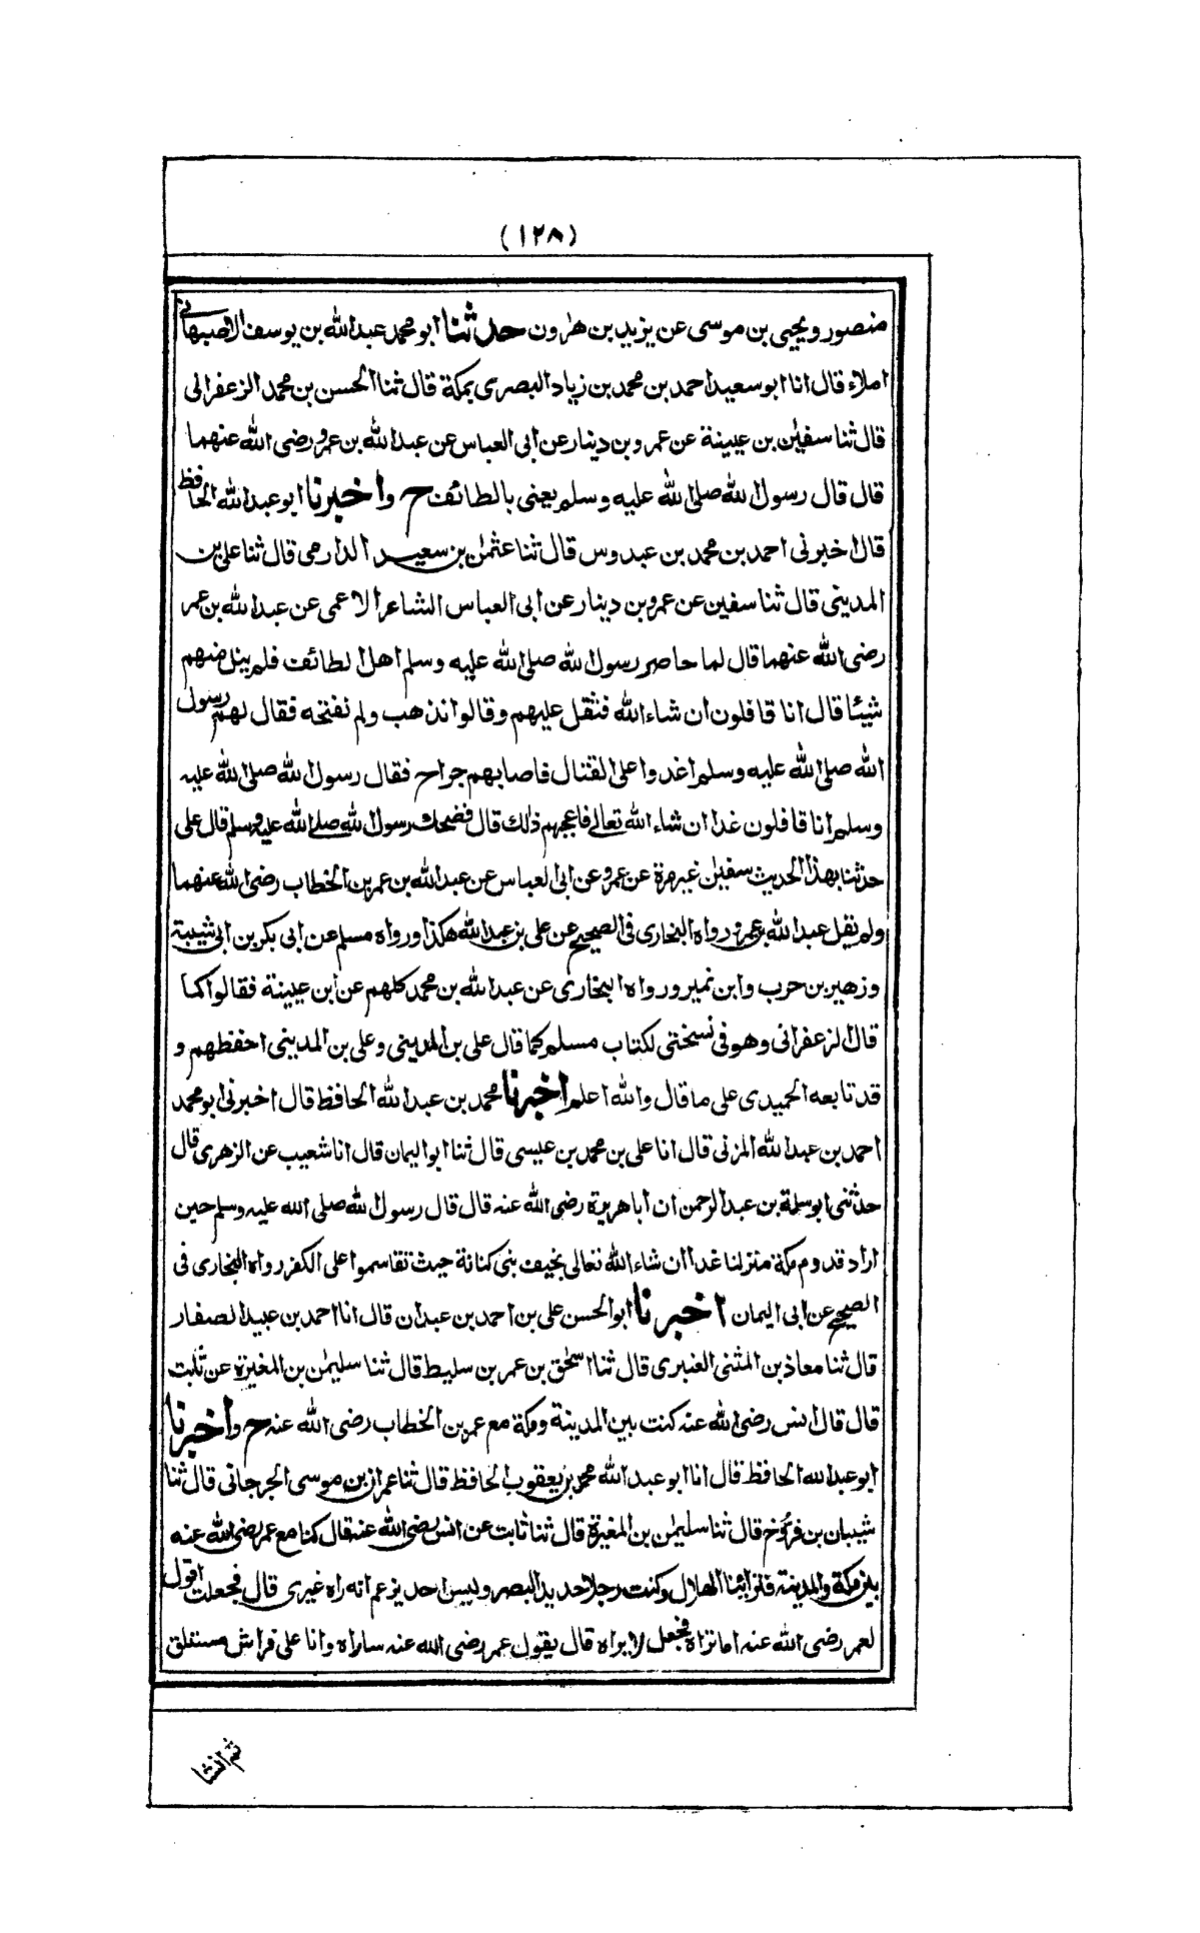 (١٢٨)
منصور ويحيى بن موسى عن يزيد بن هٰرون حدثنا ابو محمد عبدالله بن يوسف الاصبهانى
املاء قال انا ابو سعيد احمد بن محمد بن زياد البصرى بمكة قال ثنا الحسن بن محمد الزعفرانى
قال ثنا سفيٰن بن عيينة عن عمرو بن دينار عن ابى العباس عن عبد الله بن عمرو رضى الله عنهما
قال قال رسول الله صلى الله عليه وسلم يعنى بالطائف ح واخبرنا ابو عبد الله الحافظ
قال اخبرنى احمد بن محمد بن عبدوس قال ثنا عثمٰن بن سعيد الدارمى قال ثنا على بن
المدينى قال ثنا سفين عن عمرو بن دينار عن ابى العباس الشاعر الاعمى عن عبد الله بن عمر
رضى الله عنهما قال لما حاصر رسول الله صلى الله عليه وسلم اهل الطائف فلم ينل منهم
شيئا قال انا قافلون ان شاء الله فثقل عليهم وقالوا نذهب ولم نفتحه فقال لهم رسول
الله صلى الله عليه وسلم اغدوا على القتال فاصابهم جراح فقال رسول الله صلى الله عليه
وسلم انا قافلون غدا ان شاء الله تعالى فاعجبهم ذلك قال فضحك رسول الله صلى الله عليه وسلم قال على
حدثنا بهذا الحديث سفيٰن غير مرة عن عمرو عن ابى العباس عن عبد الله بن عمر بن الخطاب رضى الله عنهما
ولم يقل عبد الله بن عمرو رواه البخارى فى الصحيح عن على بن عبد الله هكذا ورواه مسلم عن ابى بكر بن ابى شيبة
وزهير بن حرب وابن نمير ورواه البخارى عن عبد الله بن محمد كلهم عن ابن عيينة فقالوا كما
قال الزعفرانى وهو فى نسختى لكتاب مسلم كما قال على بن المدينى وعلى بن المدينى احفظهم و
قد تابعه الحميدى على ما قال والله اعلم اخبرنا محمد بن عبد الله الحافظ قال اخبرنى ابو محمد
احمد بن عبد الله المزنى قال انا على بن محمد بن عيسى قال ثنا ابو اليمان قال انا شعيب عن الزهرى قال
حدثنى ابو سلمة بن عبد الرحمن ان ابا هريرة رضى الله عنه قال قال رسول الله صلى الله عليه وسلم حين
اراد قدوم مكة منزلنا غدا ان شاء الله تعالى بخيف بنى كنانة حيث تقاسموا على الكفر رواه البخارى فى
الصحيح عن ابى اليمان اخبرنا ابو الحسن على بن احمد بن عبدان قال انا احمد بن عبيد الصفار
قال ثنا معاذ بن المثنى العنبرى قال ثنا اسحٰق بن عمر بن سليط قال ثنا سليمٰن بن المغيرة عن ثابت
قال قال انس رضى الله عنه كنت بين المدينة ومكة مع عمر بن الخطاب رضى الله عنه ح واخبرنا
ابو عبد الله الحافظ قال انا ابو عبد الله محمد بن يعقوب الحافظ قال ثنا عمران بن موسى الجرجانى قال ثنا
شيبان بن فروخ قال ثنا سليمٰن بن المغيرة قال ثنا ثابت عن انس رضى الله عنه قال كنا مع عمر رضى الله عنه
بين مكة والمدينة فتراينا الهلال وكنت رجلا حديد البصر وليس احد يزعم انه راه غيرى قال فجعلت اقول
لعمر رضى الله عنه اما تراه فجعل لا يراه قال يقول عمر رضى الله عنه ساراه وانا على فراش مستلق
ثم انشا